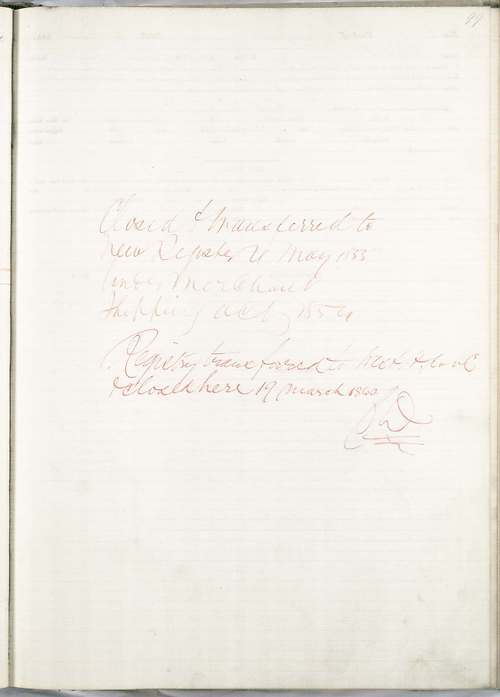 99
Closed & transferred to
new Register 21 May 1855
Under Merchant
Shipping Act of 1854
Registry transferred to
& closed here 19 March 1860